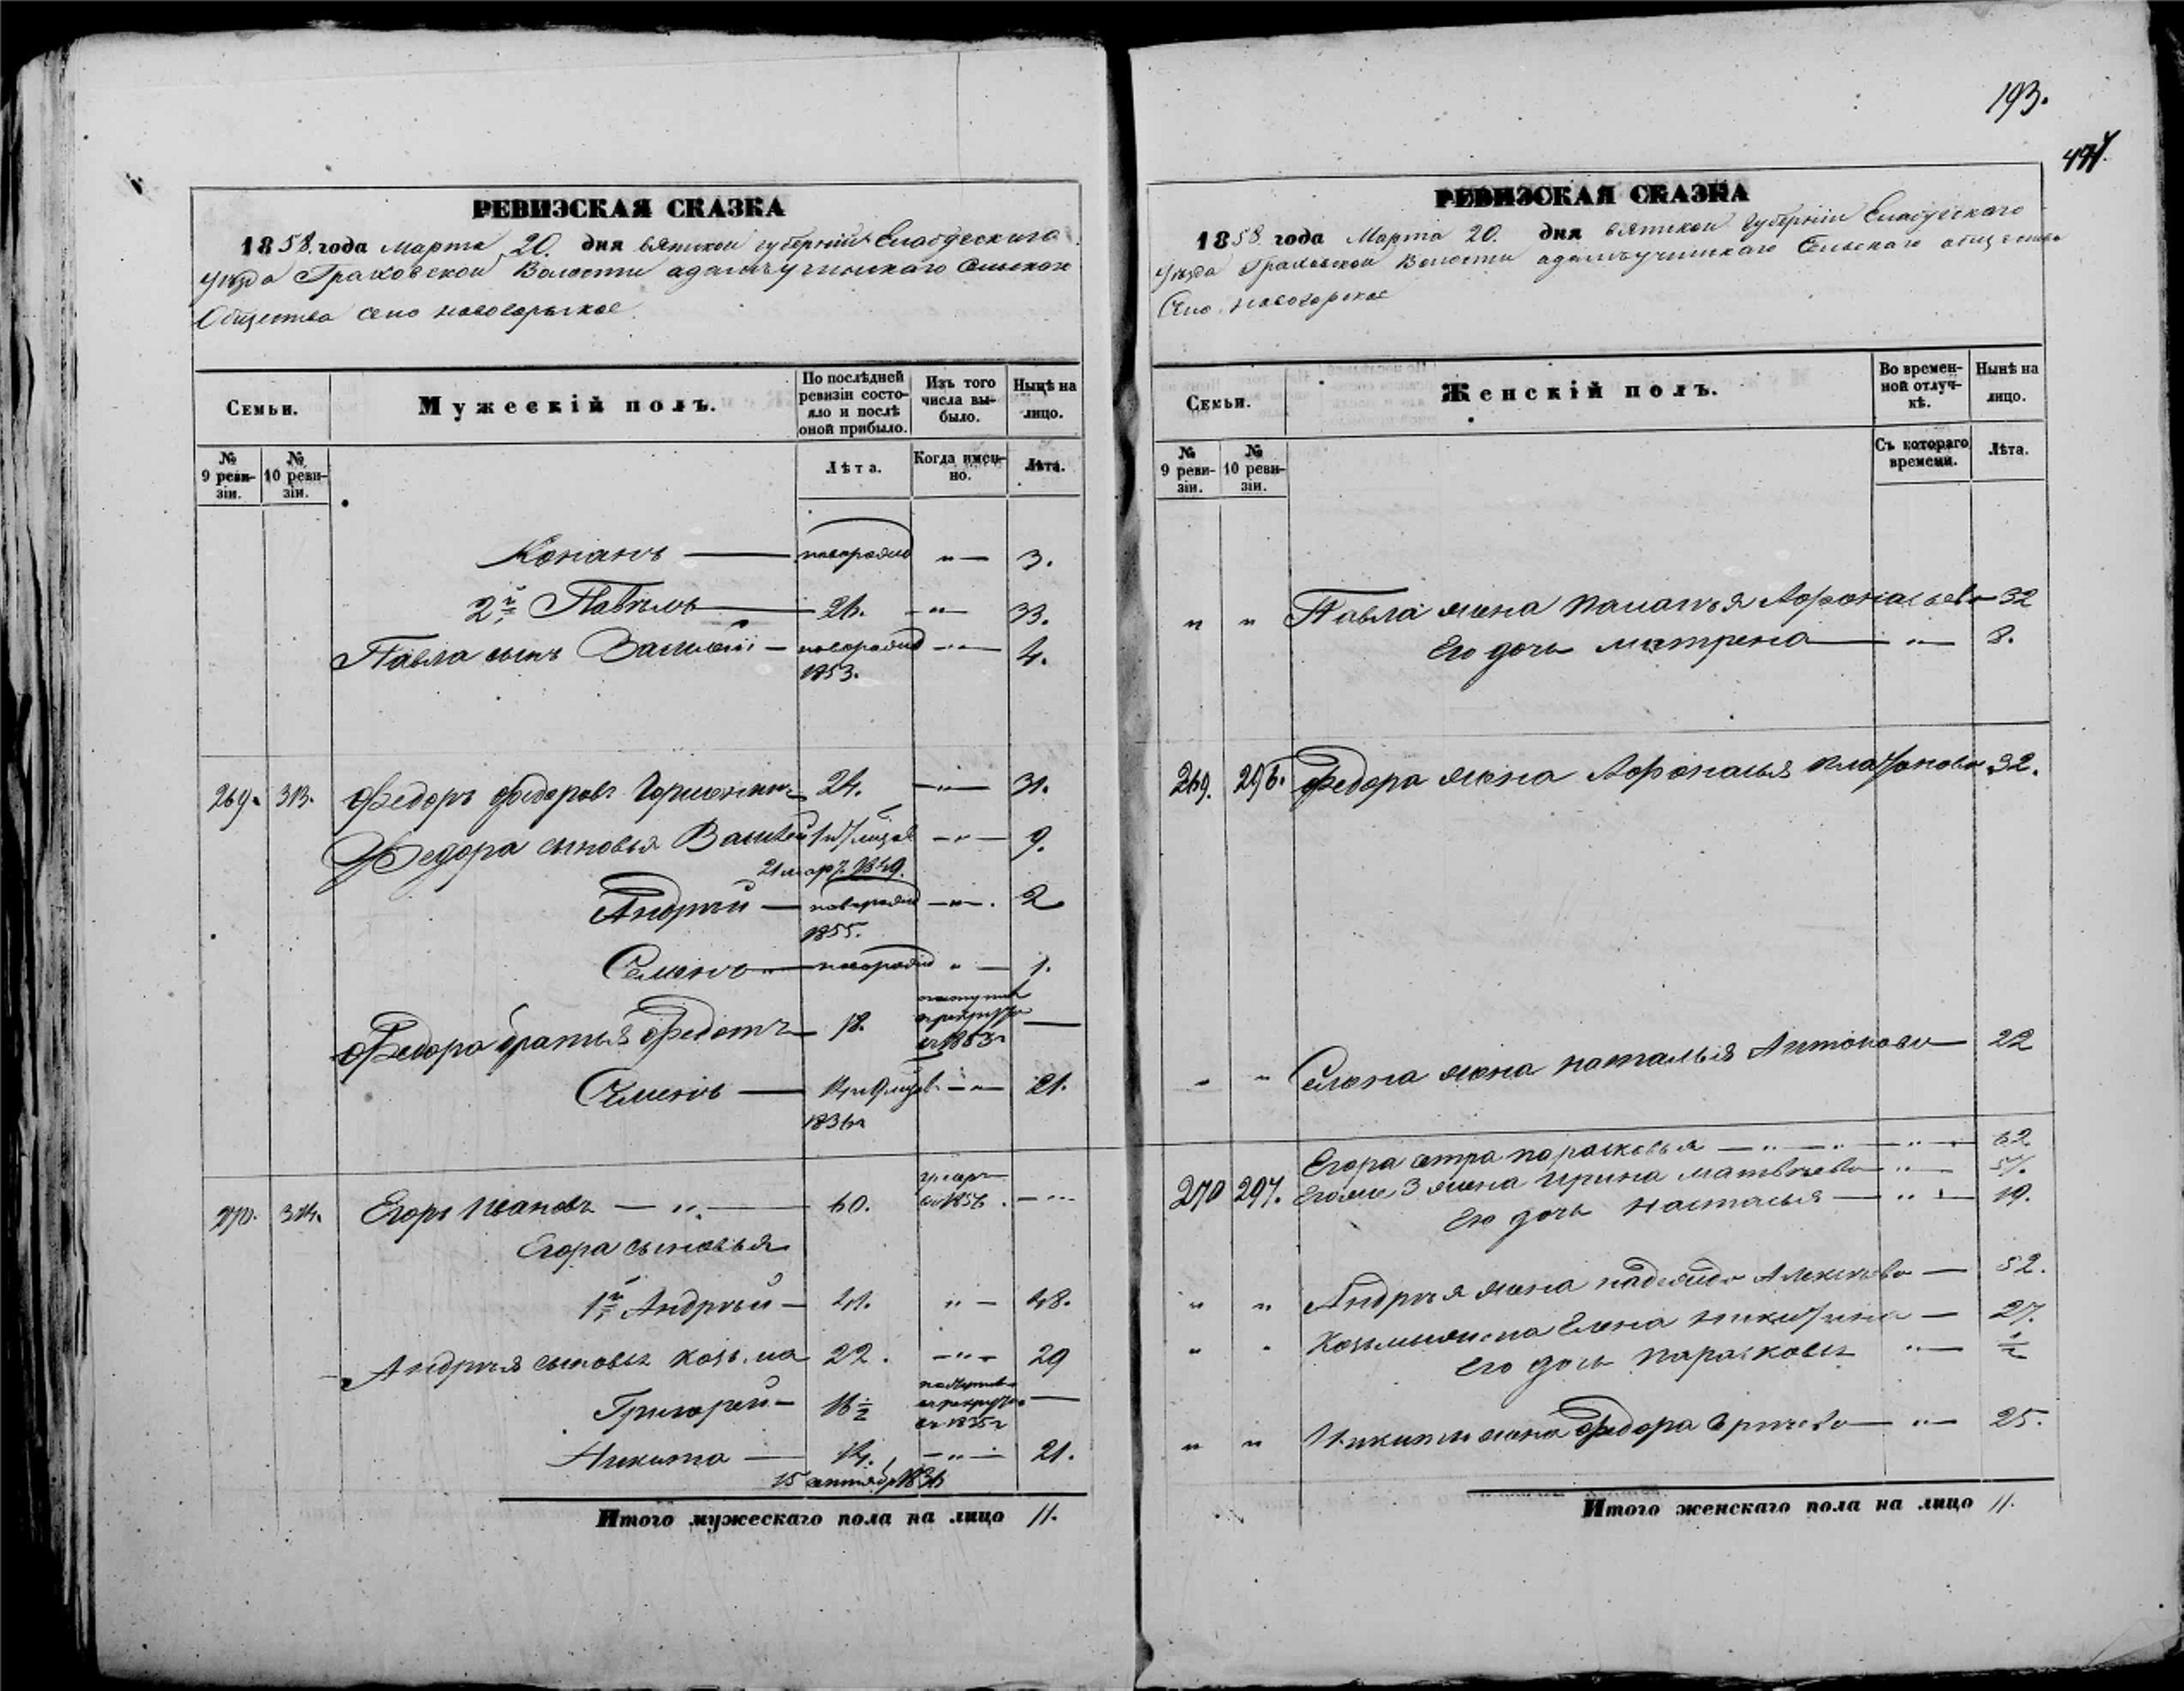 193.
РЕВИЗСКАЯ СКАЗКА
1858 года Марта 20. дня вятской губернии Елабугского
уезда Граховской Волости адамъучинскаго Сельскаго
Общества село новогорское
Семьи.
Мужескій полъ.
По послѣдней ревизіи состояло и послѣ оной прибыло.
Изъ того числа выбыло.
Нынѣ на лицо.
№ 9 ревизіи.
№ 10 ревизіи.
Лѣта.
Когда именно.
Лѣта.
Кононъ — новорожд " — 3.
2й Павелъ — 26. — " — 33.
Павла сынъ Василий — новорожд — " — 4.
1853.
269. 313. Федоръ федоровъ 24. — " — 31.
Федора сыновья Василей — " — 9.
21 мар. 1849.
Андрей — новорожд — " — 2
1855.
Семенъ — новорожд " — 1.
Федора братья Федотъ — 18. —
Семенъ — " — 21.
1836
270. 314. Егоръ Ивановъ — " — 60. умеръ в 1856. —
Егора сыновья
1й Андрей — 41. " — 48.
Андрея сыновья Козьма 22. — " — 29
Григорей — 16 1/2 —
Никита — 14. — " — 21.
15 сентября 1836
Итого мужескаго пола на лицо 11.
РЕВИЗСКАЯ СКАЗКА
1858 года Марта 20. дня вятской губернии Елабугского
уезда Граховской Волости адамъучинскаго Сельскаго общества
Село новогорское
Семьи.
Женскій полъ.
Во временной отлучкѣ.
Нынѣ на лицо.
№ 9 ревизіи.
№ 10 ревизіи.
Съ котораго времени.
Лѣта.
" " Павла жена Афонасьева 32
Его дочь матрена — " — 8.
269. 296. Федора жена Афонасья платонова 32.
" " Семена жена наталья Антонова — 22
Егора сестра парасковья — " — " — " — 62
270 297. Егора 3 жена Ирина матвеева — " — 57.
Его дочь настасья — " — 19.
" " Андрея жена надежда Алексеева — 52.
" " Козьмы жена Елена никитина — 27.
Его дочь парасковья " — 1/2
" " Никиты жена Федора — " — 25.
Итого женскаго пола на лицо 11.